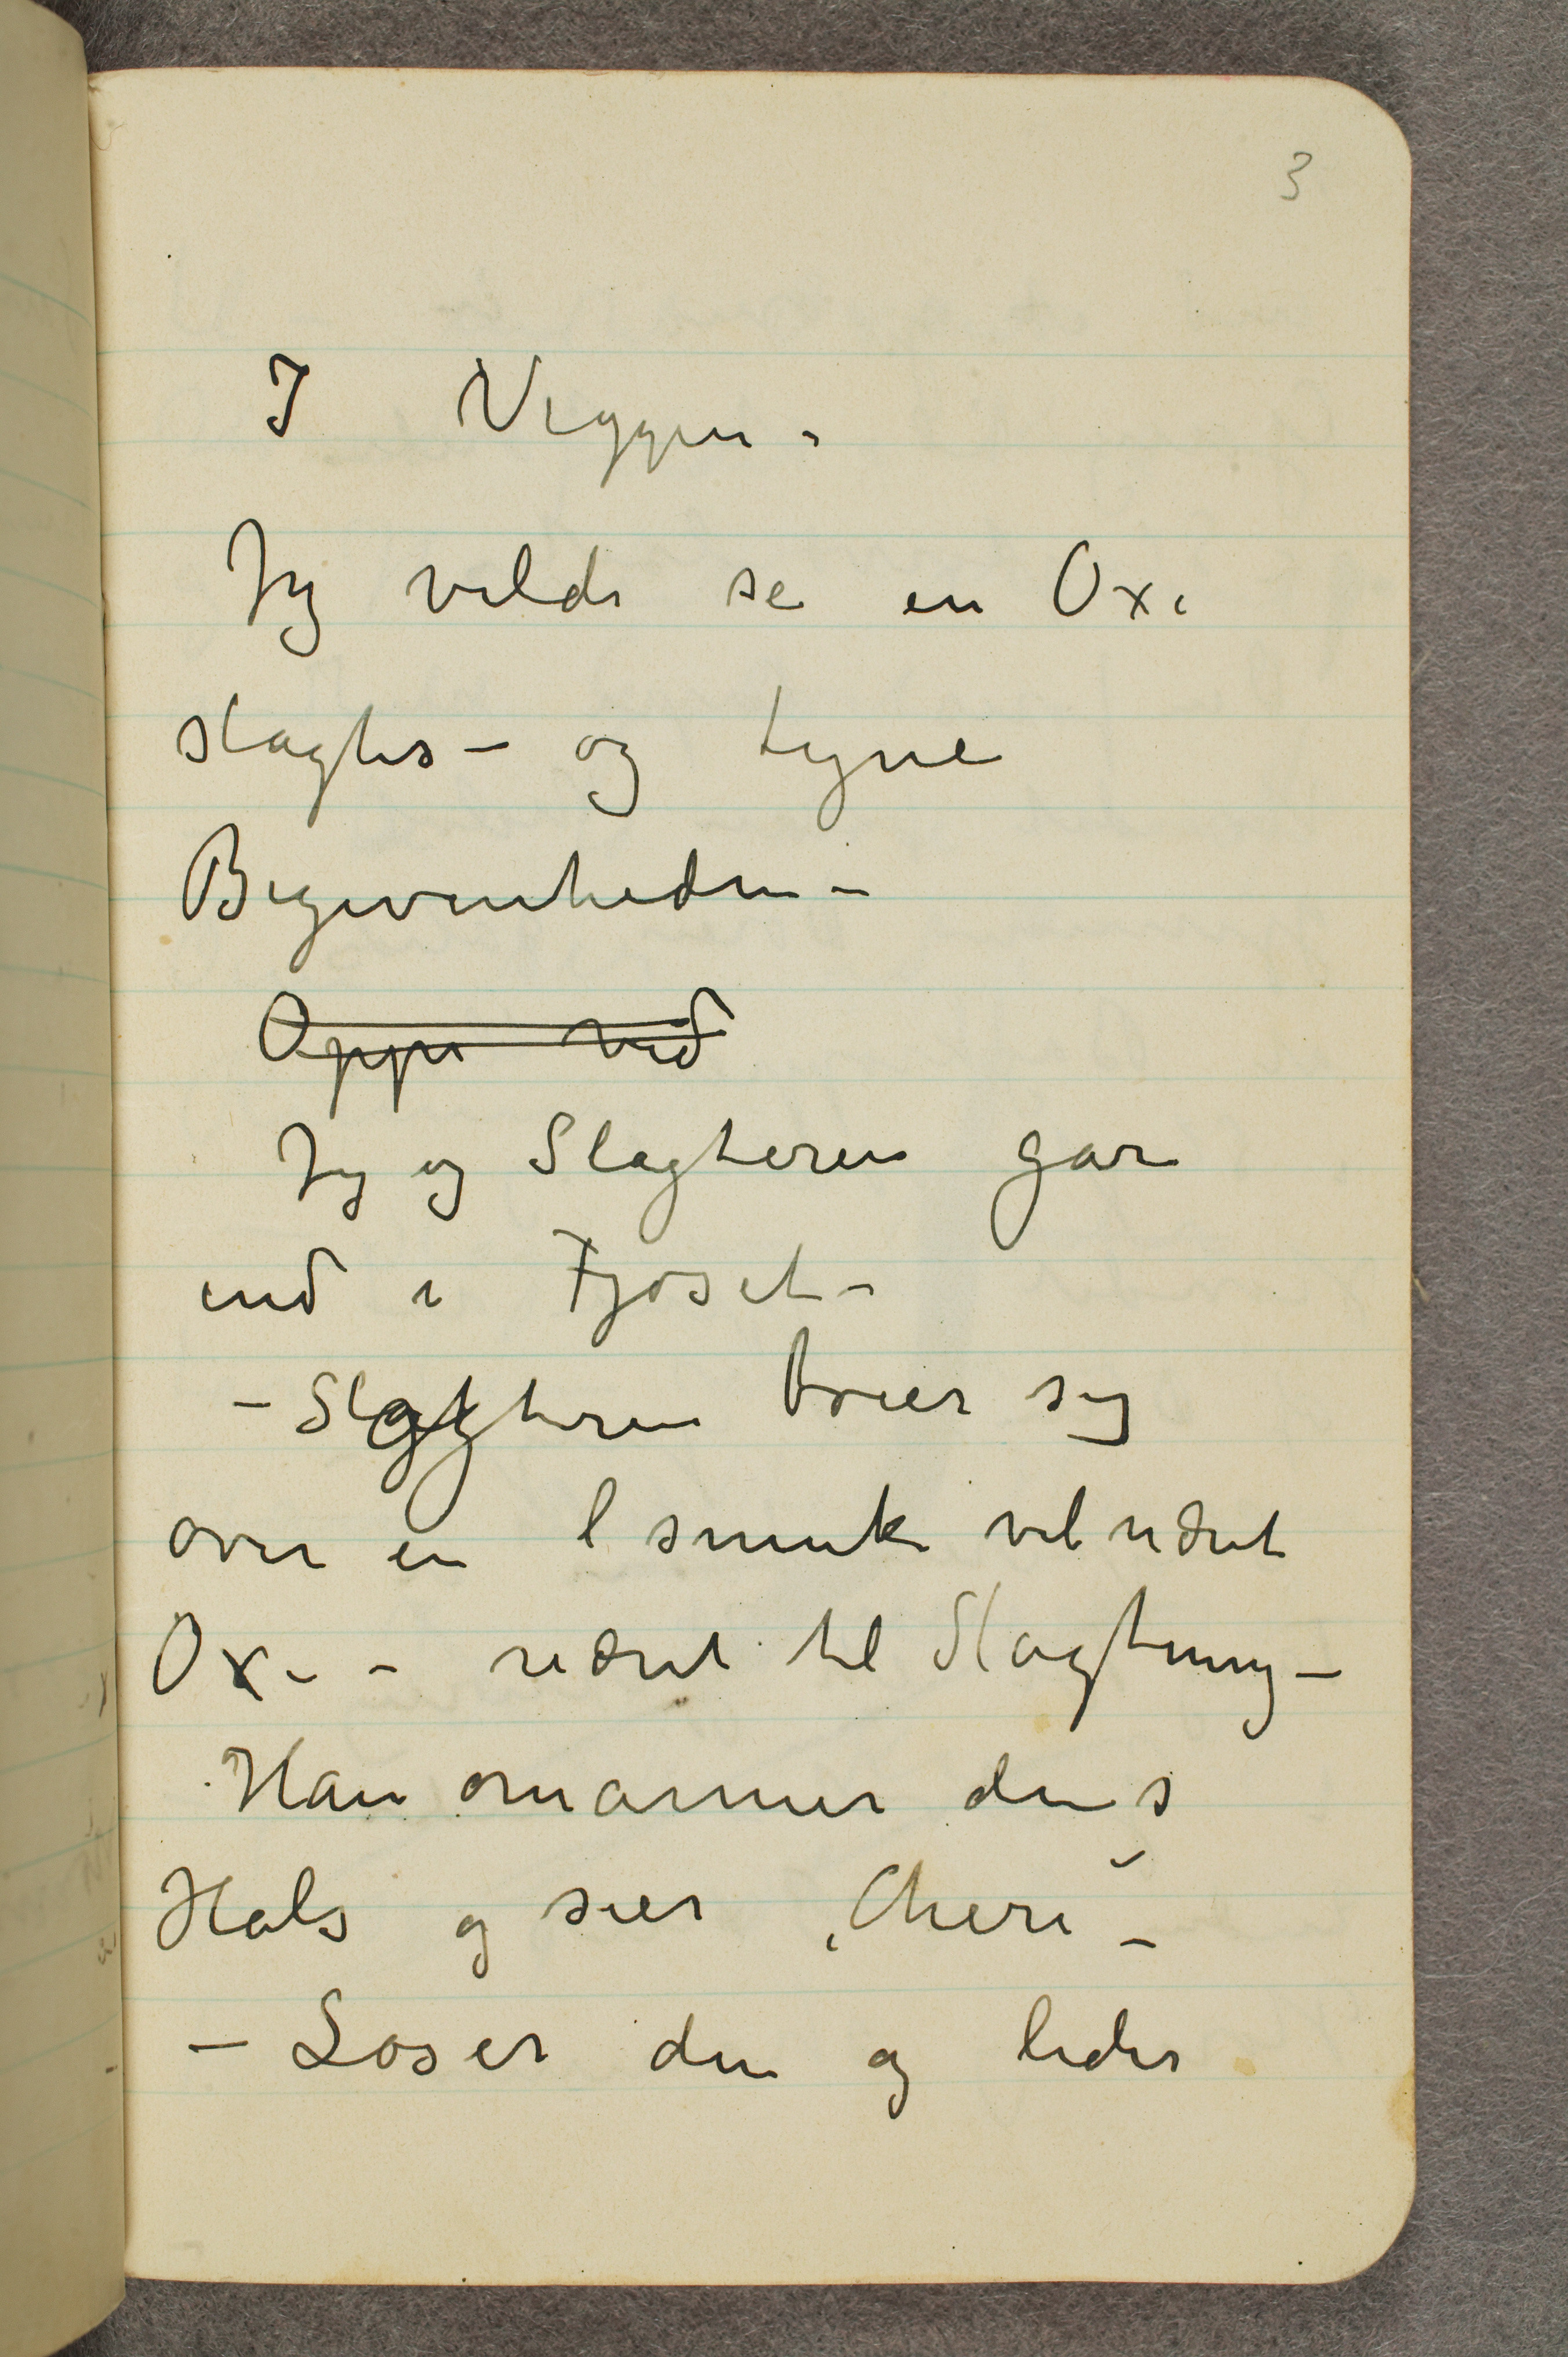 3
I Veggen –
Jeg vilde se en Oxe
slagtes – og tyve
Begivenheden –
Oppe ved
Jeg og Slagteren gar
ind i Fjøset –
– Slagteren bøier sig
over en smuk vel næret
Oxe – næret til Slagtning –
Han omarmer dens
Hals og sier „Cheri“ –
– Løser den og leder